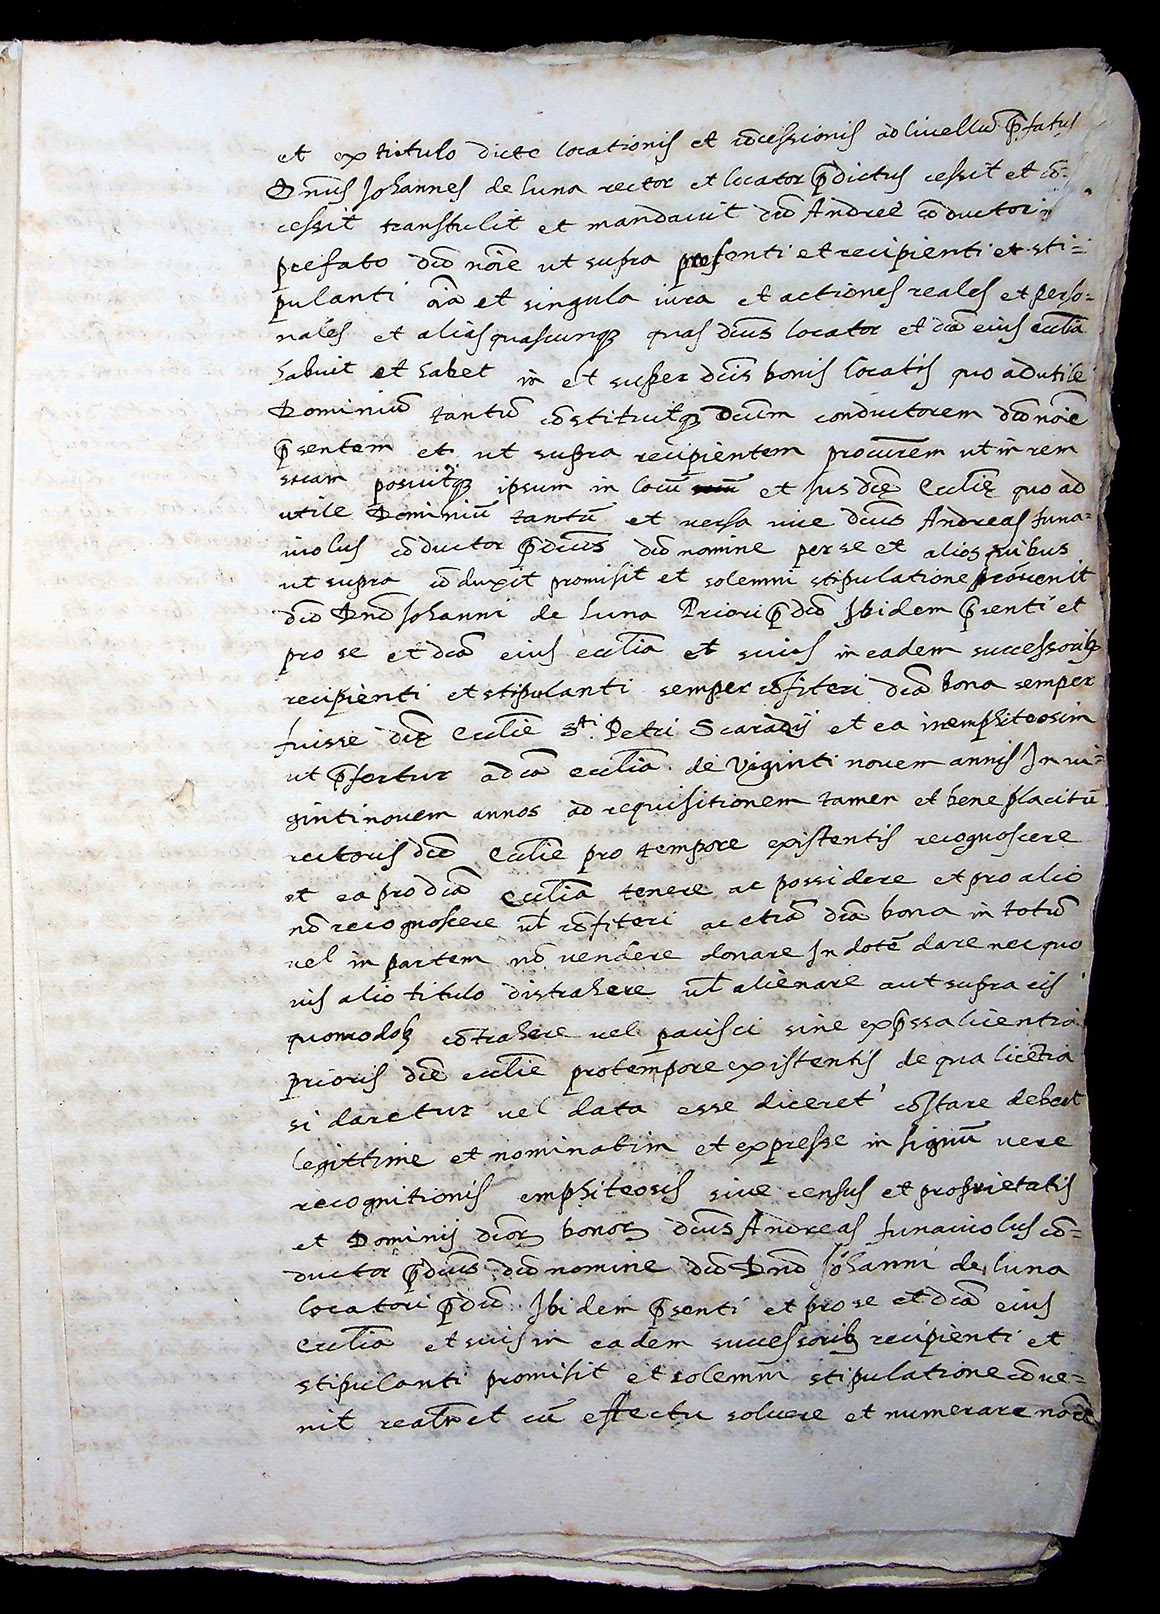 et ex titulo dicte locationis et cõcessionis ad livellũ p̃fatus
Dnũs Johannes de Luna rector et locator p̃dictus cessit et cõ-
cessit transtulit et mandavit dcõ Andreę cõductori
prefato dcõ nõie ut supra presenti et recipienti et sti=
pulanti oĩa et singula iura et actiones reales et perso=
nales et alias quascunq, quas dcũs locator et dcã eius ecclĩa
habuit et habet in et super dcĩs bonis locatis quo ad utile
Dominiũ tantũ cõstituitq, dcũm conductorem dcõ nõie
p̃sentem et ut supra recipientem procũrem ut in rem
suam posuitq, ipsum in locũ et Jus dcę̃ Ecclĩę quo ad
utile Dominiũ tantũ et versa vice dcũs Andreas funa=
violus cõductor p̃dcũs dcõ nomine per se et alios quibus
ut supra cõduxit promisit et solemni stipulatione convenit
dcõ Dnõ Johanni de Luna Priori p̃dcõ Ibidem p̃senti et
pro se et dcã eius ecclĩa et suis in eadem successorib,
recipienti et stipulanti semper cõfiteri dcã bona semper
fuisse dcę̃ Ecclĩe S.ti Petri Scaradij et ea in emphiteosim
ut p̃fertur a dcã ecclĩa de Viginti novem annis In vi=
ginti novem annos ad requisitionem tamen et bene placitũ
rectoris dcẽ Ecclĩe pro tempore existentis recognoscere
et ea pro dcã Ecclĩa tenere ac possidere et pro alio
nõ recognoscere vl̃ cõfiteri ac etiã dcã bona in totũ
vel in partem nõ vendere donare In dotẽ dare nec quo
vis alio titulo distrahere vl̃ alienare aut supra eis
quomodolꝫ cõtrahere vel pacisci sine exp̃ssa licentia
prioris dcẽ ecclĩe pro tempore existentis de qua licẽtia
si daretur vel data esse diceret' cõstare debeat
legittime et nominatim et expresse in signũ vere
recognitionis emphiteosis sive census et proprietatis
et Dominij dcõrꝫ bonorꝫ dcũs Andreas funaviolus cõ=
ductor p̃dcũs dcõ nomine dcõ Dnõ Johanni de Luna
locatori p̃dcõ Ibidem p̃senti et pro se et dcã eius
Ecclĩa et suis in eadem successorib, recipienti et
stipulanti promisit et solemni stipulatione cõve=
nit realr̃ et cũ effectu solvere et numerare nõie